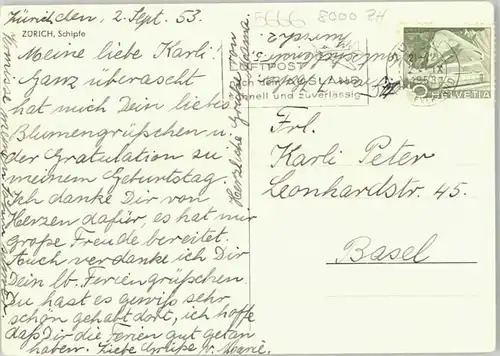 Zürich, den 2. Sept. 53.
ZÜRICH, Schipfe
Meine liebe Karli!
Ganz überascht
hat mich Dein liebes
Blumengrüßchen u.
der Gratulation zu
meinem Geburtstag.
Ich danke Dir von
Herzen dafür, es hat mir
große Freude bereitet.
Auch verdanke ich Dir
Dein lb. Feriengrüßchen.
Du hast es gewiß sehr
schön gehabt dort, ich hoffe
daß Dir die Ferien gut getan
haben. Liebe Grüße v. Marie.
Herzliche Grüße von
5666 8000 ZH
LUFTPOST
nach ÜBERSEE
schnell und zuverlässig
HELVETIA
Frl.
Karli Peter
Leonhardstr. 45.
Basel